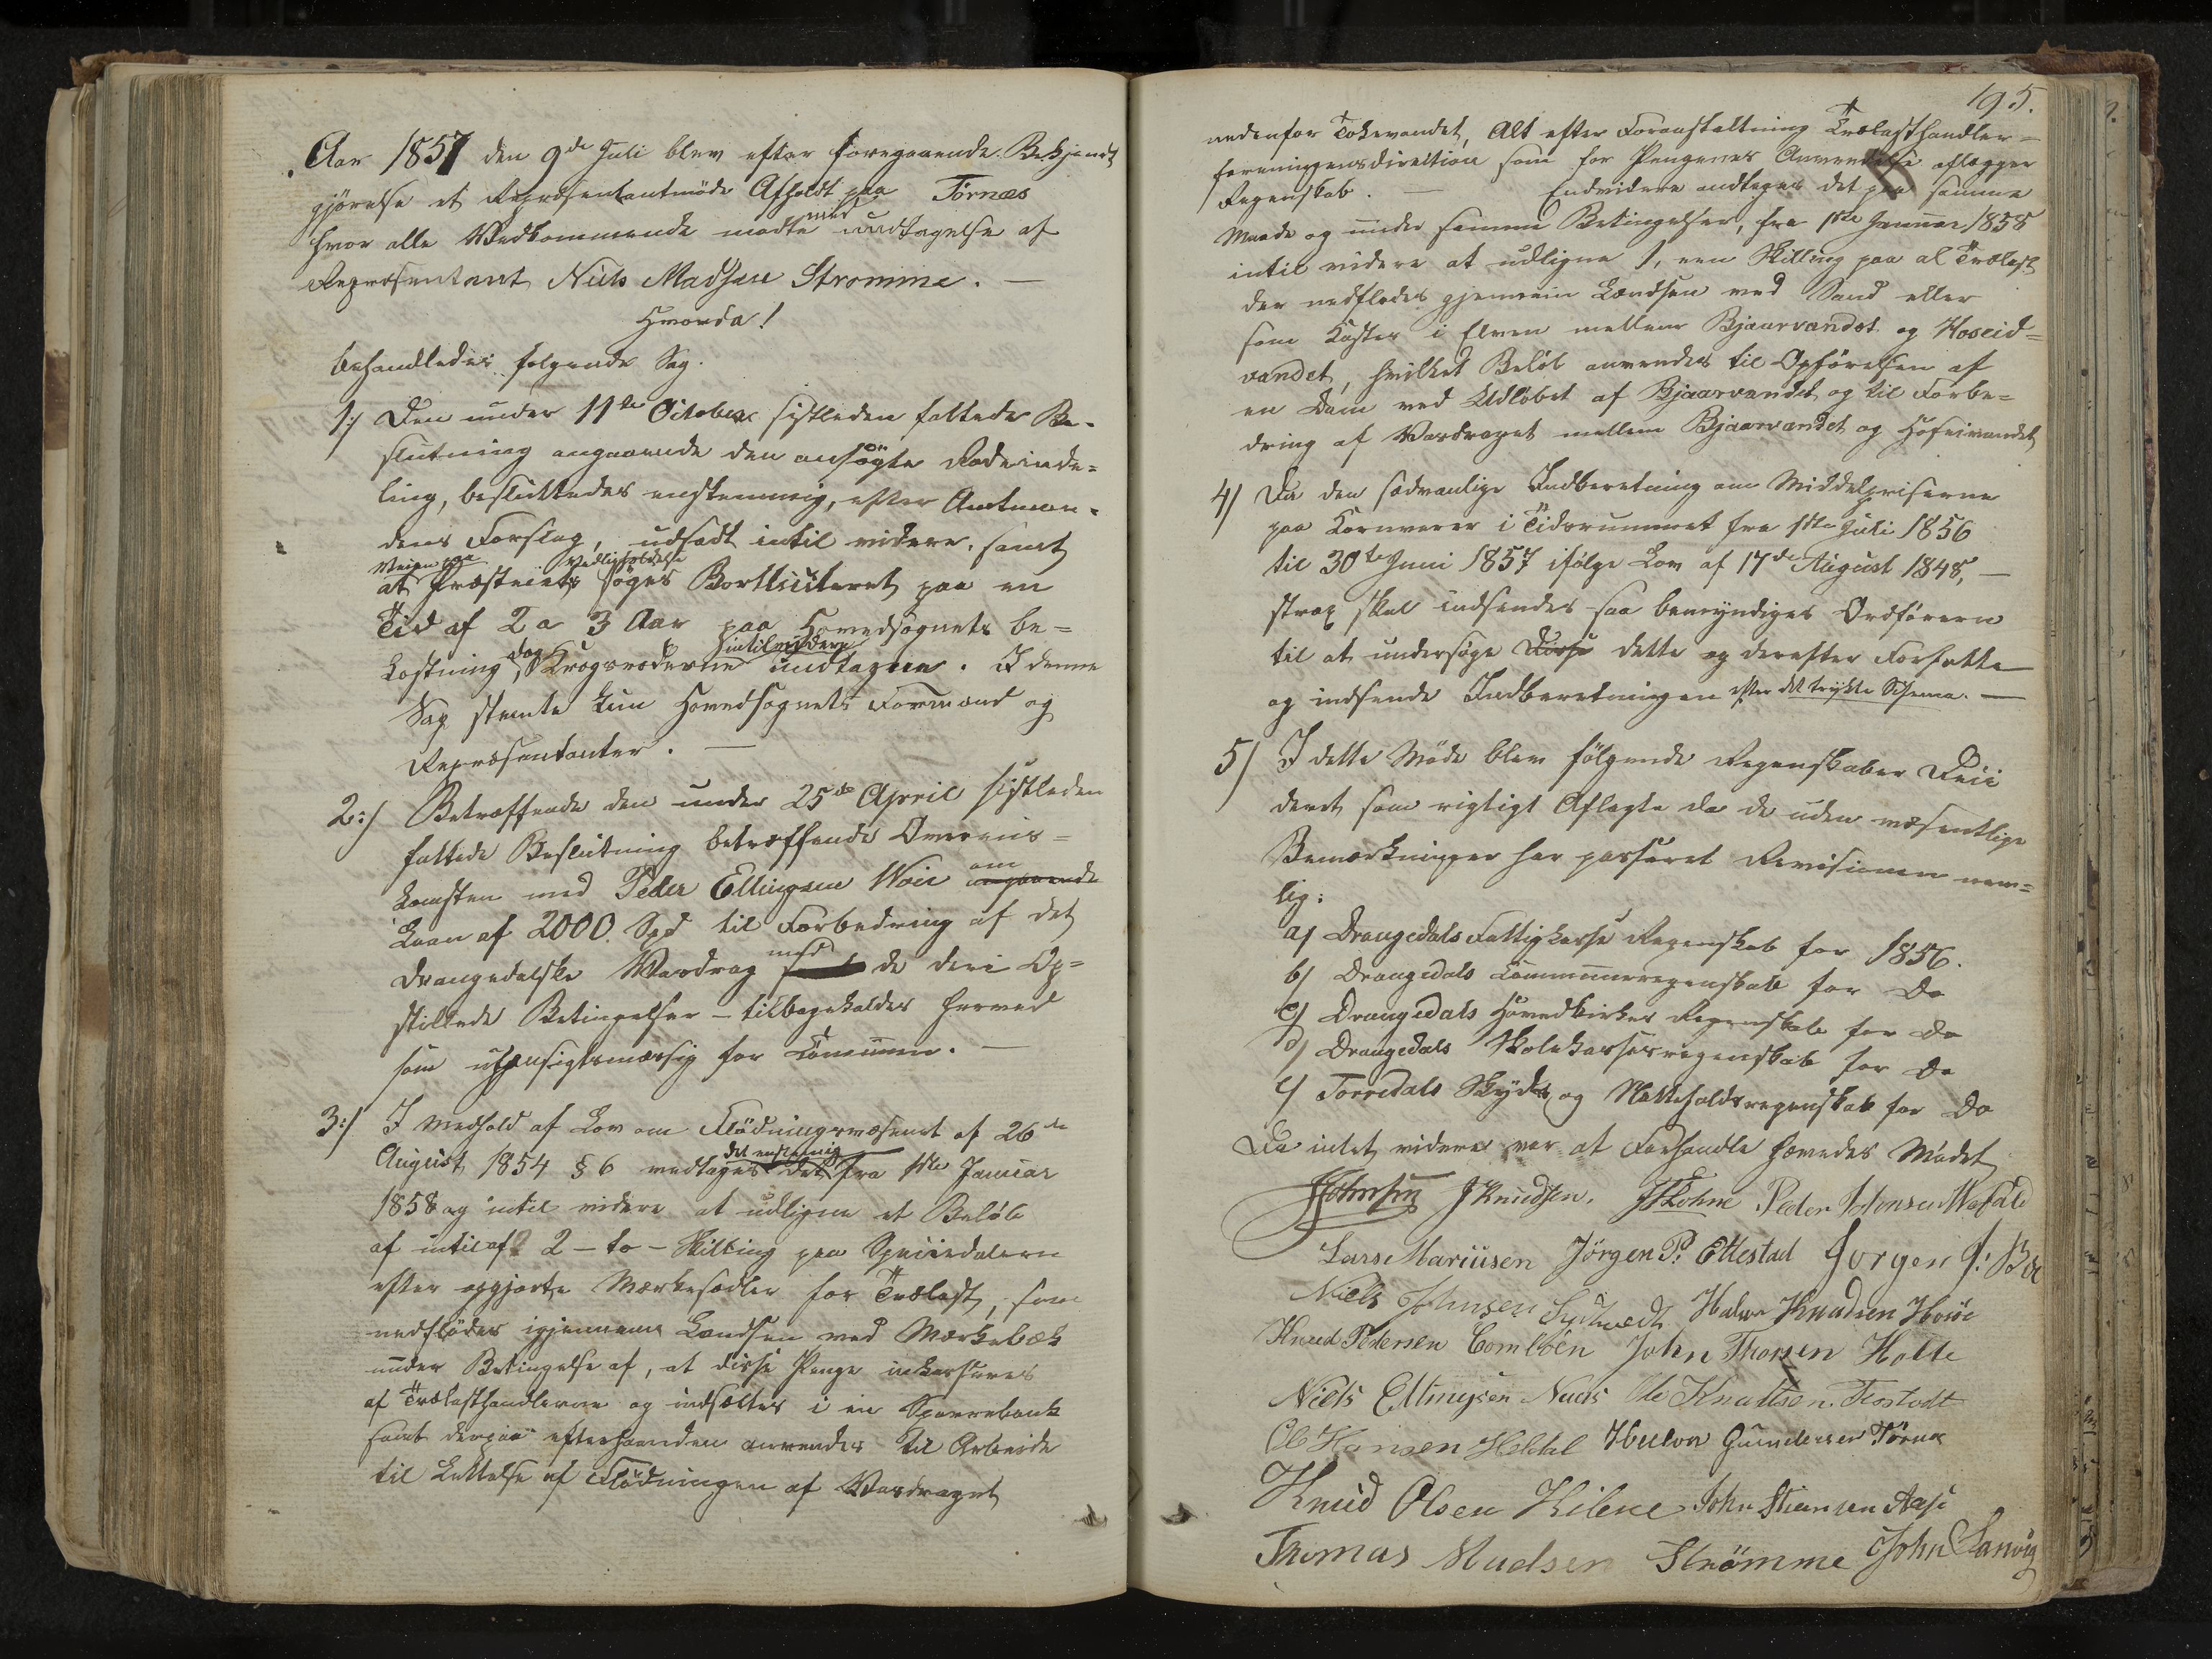 Aar 1857 den 9de Juli blev efter foregaaende Bekjendt
gjörelse et Repræsentantmöde Afholdt paa Törnæs
hvor alle Vedkommende mødte med undtagelse af
Repræsentant Niels Madsen Strømme. —
Hvorda!
behandledes følgende Sag.
1:/ Den under 11te October sistleden fattede Be-
slutning angaaende den ansögte Rodeinde=
ling, besluttedes enstemmig, efter Amtman-
dens Forslag, udsadt intil videre, samt
at Veien paa Præsteiets Vedligeholdelse söges Bortliciteret paa en
Tid af 2 a 3 Aar paa Hovedsognets be=
kostning, dog Krogsroderne intil videre undtagen. I denne
Sag stemte kun Hovedsognets Formænd og
Repræsentanter. —
2:/ Betræffende den under 25de April sistleden
fattede Beslutning betræffende Overens=
komsten med Peder Ellingsen Moie om angaaende
Laan af 2000 Spd til Forbedring af det
Drangedalske Vasdrag med de deri Op=
stillede Betingelser – tilbagekaldes herved
som uhensigtsmæssig for Communen. —
3:/ I Medhold af Lov om Flödningsvæsenet af 26de
August 1854 § 6 vedtages det enstemmig det fra 1ste Januar
1858 og intil videre at udligne et Beløb
af intil af 2 – to – Skilling paa Speciedaleren
efter opgjorte Mærkesedler for Trælast, som
nedflödes igjennem Landsen ved Mærkebæk
under Betingelse af, at disse Penge inkasseres
af Trælasthandlerne og indsættes i en Sparrebank
samt derpaa efterhaanden anvendes til Arbeide
til Lettelse af Flödningen af Vasdraget
195.
nedenfor Tokevandet, Alt efter Foranstaltning Trælasthandler=
foreningensdirektion som for Pengenes Anvendelse aflægger
Regenskab. — Endvidere andtages det paa samme
Maade og under samme Betingelser, fra 1ste Januar 1858
intil videre at udligne 1, een Skilling paa al Trælast
der nedflödes gjennem Landsen ved Sand eller
som kaster i Elven mellem Bjaarvandet og Hoseid=
vandet, hvilket Beløb anvendes til Opförelsen af
en Dam ved Udløbet af Bjaarvandet og til Forbe=
dring af Vasdraget mellem Bjaarvandet og Hoseivandet
4/ Da den sædvanlige Indberetning om Middelpriserne
paa Kornvarer i Tidsrummet fra 1ste Juli 1856
til 30te Juni 1857 ifølge Lov af 17de August 1848, —
strax skal indsendes saa bemyndiges Ordföreren
til at undersøge Disse dette og derefter Forfatte
og indsende Indberetningen efter det trykte Schema. —
5/ I dette Möde blev fölgende Regenskaber Deci
deret som rigtigt Aflagte da de uden væsentlige
Bemærkninger har passeret Revisionen nem=
lig:
a/ Drangedals Fattigkasse Regenskab for 1856.
b/ Drangedals Communeregenskab for Do
c/ Drangedals Hovedkirkes Regenskab for Do
d/ Drangedals Skolekasseregenskab for Do
e/ Torredals Skyds og Mætteholdsregenskab for Do
Da intet videre var at Forhandle hævedes Mødet
Johnsen JKnudsen. Peder Johnsen
Lars Mariusen Jörgen P: Ettestad Jorgen
Niels Johnsen Halvor Knudsen
Knud Pedersen John Thorsen Holte
Niels Ellingsen Naas Ole Knudtsen
Ole Hansen Halvor Gundersen
Knud Olsen Kilene John Stiansen Aase
Thomas Madsen Strömme John Sanvig